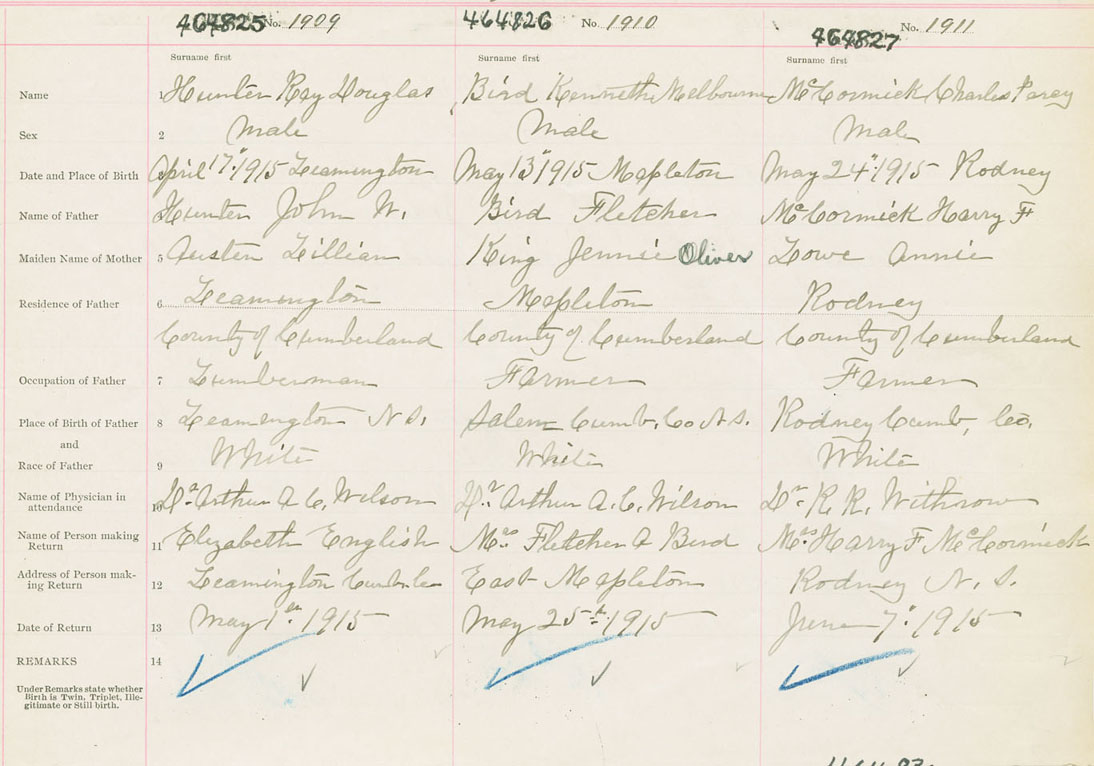 464825 No. 1909 464826 No. 1910 464827 No. 1911
Surname first Surname first Surname first
Name 1 Hunter Ray Douglas Bird Kenneth Melbourne McCormick Charles Percy
Sex 2 Male Male Male
Date and Place of Birth April 17" 1915 Leamington May 13" 1915 Mapleton May 24" 1915 Rodney
Name of Father Hunter John W. Bird Fletcher McCormick Harry F
Maiden Name of Mother 5 Austen Lillian King Jennie Oliver Lowe Annie
Residence of Father 6 Leamington Mapleton Rodney
County of Cumberland County of Cumberland County of Cumberland
Occupation of Father 7 Lumberman Farmer Farmer
Place of Birth of Father 8 Leamington N S. Salem Cumb. Co N.S. Rodney Cumb, Co.
and
Race of Father 9 White White White
Name of Physician in
attendance 10 Dr. Arthur A C. Wilson Dr. Arthur A. C. Wilson Dr. R. R. Withrow
Name of Person making
Return 11 Elizabeth English Mrs Fletcher A Bird Mrs Harry F McCormick
Address of Person mak-
ing Return 12 Leamington East Mapleton Rodney N. S.
Date of Return 13 May 1st 1915 May 25th 1915 June 7" 1915
REMARKS 14
Under Remarks state whether
Birth is Twin, Triplet, Ille-
gitimate or Still birth.